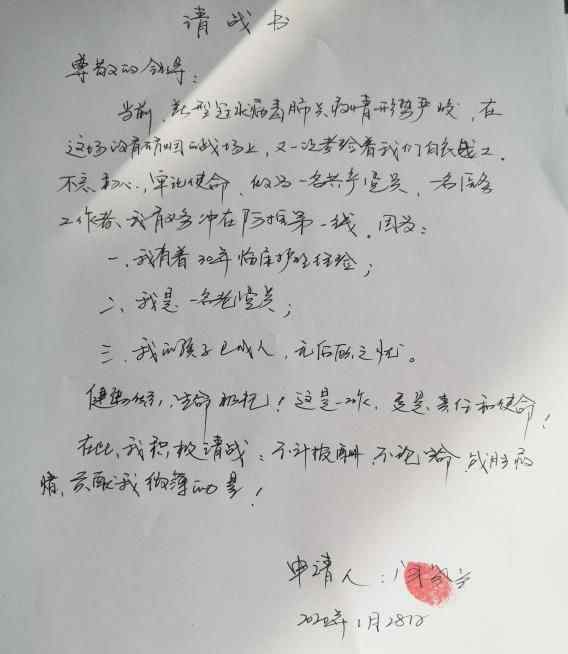 请战书
尊敬的领导：
当前，新型冠状病毒肺炎疫情形势严峻，在
这场没有硝烟的战场上，又一次考验着我们白衣战士。
不忘初心，牢记使命，做为一名共产党员，一名医务
工作者，我有义务冲在防控第一线，因为：
一、我有着30年临床护理经验；
二、我是一名老党员；
三、我的孩子已成人，无后顾之忧。
健康所系，性命相托！这是一次，更是责任和使命！
在此，我积极请战：不计报酬，不论生命，战胜病
情，贡献我微薄的力量！
申请人：
2020年1月28日